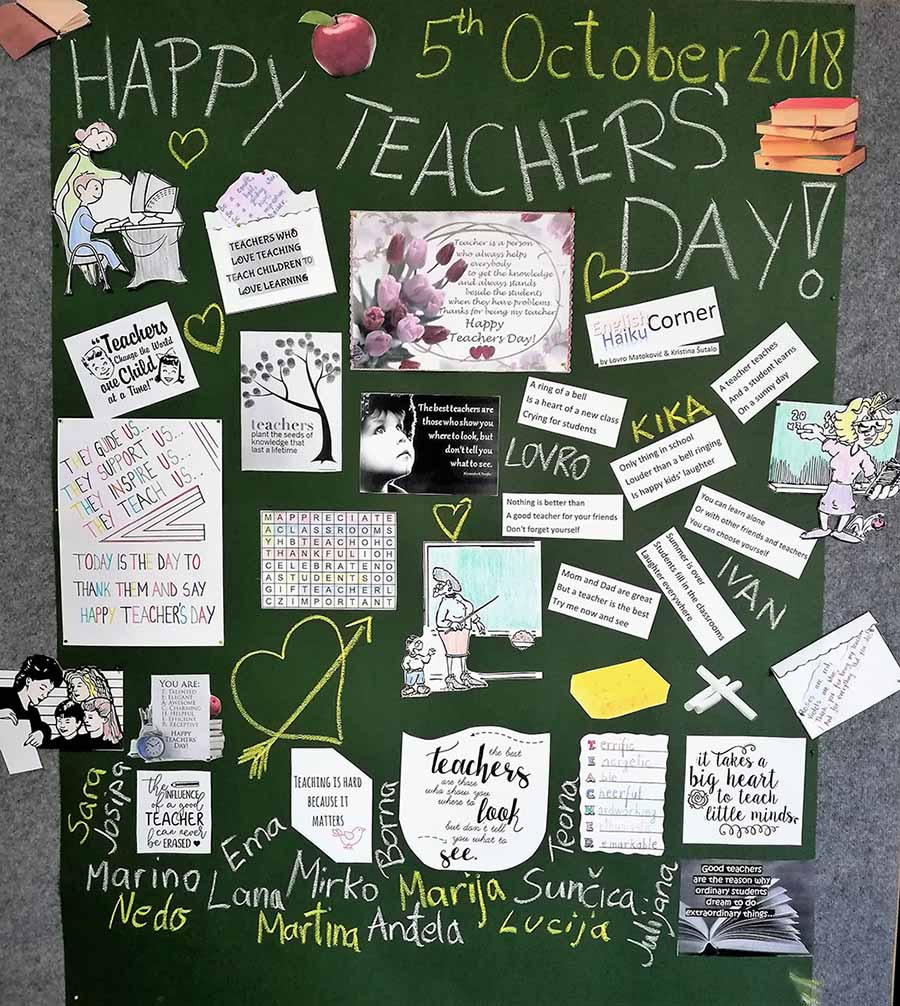 5th October 2018
HAPPY
TEACHERS'
DAY!
TEACHERS WHO
LOVE TEACHING
TEACH CHILDREN TO
LOVE LEARNING
Teacher is a person
who always helps
everybody
to get the knowledge
and always stands
beside the students
when they have problems.
Thanks for being my teacher
Happy
Teachers Day!
English
Haiku Corner
by Lovro Matoković & Kristina Šutalo
"Teachers
Change the World
one Child
at a Time!"
teachers
plant the seeds of
knowledge that
last a lifetime
The best teachers are
those who show you
where to look, but
don't tell you
what to see.
A ring of a bell
Is a heart of a new class
Crying for students
LOVRO
KIKA
A teacher teaches
And a student learns
On a sunny day
Only thing in school
Louder than a bell ringing
Is happy kids' laughter
20
Nothing is better than
A good teacher for your friends
Don't forget yourself
You can learn alone
Or with other friends and teachers
You can choose yourself
IVAN
Mom and Dad are great
But a teacher is the best
Try me now and see
Summer is over
Students fill in the classrooms
Laughter everywhere
THEY GUIDE US...
THEY SUPPORT US...
THEY INSPIRE US...
THEY TEACH US.
TODAY IS THE DAY TO
THANK THEM AND SAY
HAPPY TEACHER'S DAY
MAPPRECIATE
ACLASSROOMS
YHBTEACHOHC
THANKFULIOH
CELEBRATENO
ASTUDENTSOO
GIFTEACHERL
CZIMPORTANT
Roses are red,
YOU ARE:
T: TALENTED
E: ELEGANT
A: AWESOME
C: CHARMING
H: HELPFUL
E: EFFICIENT
R: RECEPTIVE
HAPPY
TEACHERS'
DAY!
the INFLUENCE
of a good
TEACHER
can never
be ERASED
TEACHING IS HARD
BECAUSE IT
MATTERS
the best
teachers
are those
who show you
where to
look
but don't tell
you what to
see.
Terrific
Energetic
Able
Cheerful
Hardworking
Enthusiastic
Remarkable
it takes a
big heart
to teach
little minds
Good teachers
are the reason why
ordinary students
dream to do
extraordinary things...
Sara
Josipa
Ema
Borna
Teona
Marino
Lana
Mirko
Marija
Sunčica
Julijana
Nedo
Martina
Anđela
Lucija